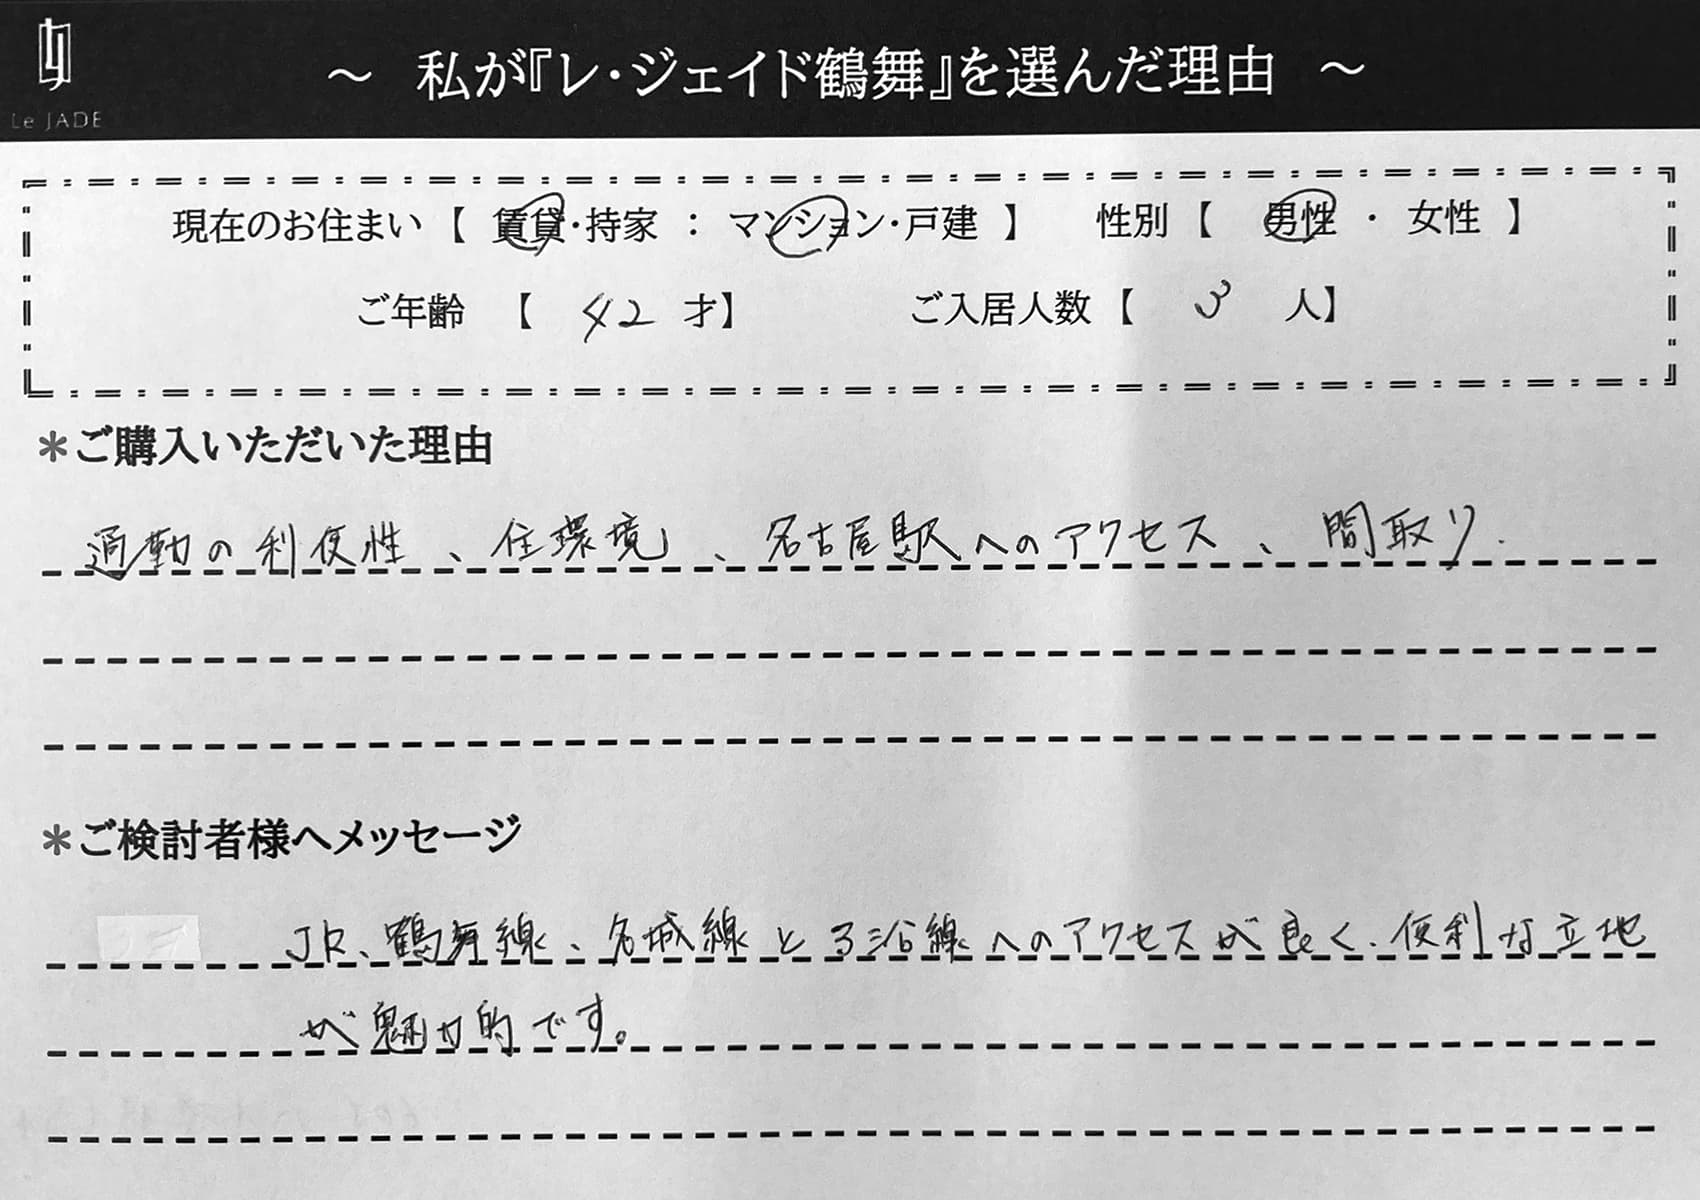 Le JADE
～ 私が『レ・ジェイド鶴舞』を選んだ理由 ～
現在のお住まい 【 賃貸・持家 ： マンション・戸建 】 性別 【 男性 ・ 女性 】
ご年齢 【 42 才】 ご入居人数 【 3 人】
＊ご購入いただいた理由
通勤の利便性、住環境、名古屋駅へのアクセス、間取り.
＊ご検討者様へメッセージ
JR、鶴舞線、名城線と3沿線へのアクセスが良く、便利な立地
が魅力的です。